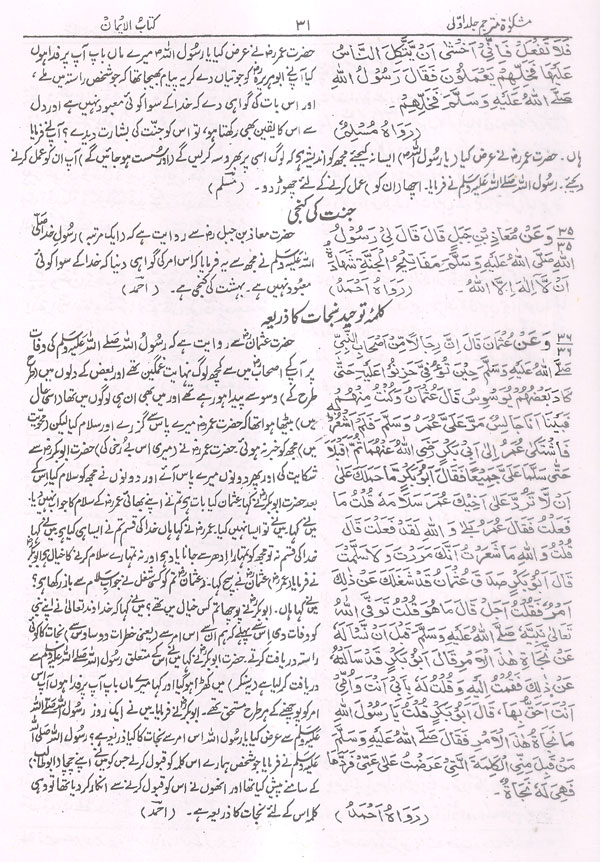 مشکوٰۃ مترجم جلد اوّل
۳۱
کتاب الایمان
فَلَا تَفْعَلْ فَاِنِّیْ اَخْشٰی اَنْ یَّتَّکِلَ النَّاسُ
عَلَیْهَا فَخَلِّهِمْ یَعْمَلُوْنَ فَقَالَ رَسُوْلُ اللهِ
صَلَّی اللهُ عَلَیْهِ وَسَلَّمَ فَخَلِّهِمْ۔
(رَوَاهُ مُسْلِمٌ)
حضرت عمرؓ نے عرض کیا یا رسول اللہ میرے ماں باپ آپ پر فدا ہوں
کیا آپنے ابوہریرہؓ کو جوتیاں دے کر یہ پیام بھیجا تھا کہ جو شخص راستہ میں ملے،
اور اس بات کی گواہی دے کہ خدا کے سوا کوئی معبود نہیں ہے اور دل
سے اس کا یقین بھی رکھتا ہو، تو اس کو جنّت کی بشارت دیدے؟ آپنے فرمایا
ہاں۔ حضرت عمرؓ نے عرض کیا (یا رسول اللہ) ایسا نہ کیجئے مجھ کو اندیشہ ہے کہ لوگ اسی پر بھروسہ کرلیں گے (اور سُست ہوجائیں گے) آپ ان کو عمل کرنے
دیجئے۔ رسول اللہ صلے اللہ علیہ وسلم نے فرمایا۔ اچھا ان کو (عمل کرنے کے لئے) چھوڑ دو۔ (مسلم)
جنت کی کنجی
۳۵
۳۵
وَعَنْ مُعَاذِ بْنِ جَبَلٍ قَالَ قَالَ لِیْ رَسُوْلُ
اللهِ صَلَّی اللهُ عَلَیْهِ وَسَلَّمَ مَفَاتِیْحُ الْجَنَّةِ شَهَادَةُ
اَنْ لَّا اِلٰهَ اِلَّا اللهُ۔ (رَوَاهُ اَحْمَدُ)
حضرت معاذ بن جبلؓ سے روایت ہے کہ (ایک مرتبہ) رسول خدا صلی
اللہ علیہ وسلم نے مجھ سے یہ فرمایا کہ اس امر کی گواہی دینا کہ خدا کے سوا کوئی
معبود نہیں ہے۔ بہشت کی کنجی ہے۔ (احمد)
کلمۂ توحید نجات کا ذریعہ
۳۶
۳۶
وَعَنْ عُثْمَانَ قَالَ اِنَّ رِجَالًا مِّنْ اَصْحَابِ النَّبِیِّ
صَلَّی اللهُ عَلَیْهِ وَسَلَّمَ حِیْنَ تُوُفِّیَ حَزِنُوْا عَلَیْهِ حَتّٰی
کَادَ بَعْضُهُمْ یُوَسْوِسُ قَالَ عُثْمَانُ وَکُنْتُ مِنْهُمْ
فَبَیْنَا اَنَا جَالِسٌ مَرَّ عَلَیَّ عُمَرُ وَسَلَّمَ فَلَمْ اَشْعُرْ بِهٖ
فَاشْتَکٰی عُمَرُ اِلٰی اَبِیْ بَکْرٍ رَضِیَ اللهُ عَنْهُمَا ثُمَّ اَقْبَلَا
حَتّٰی سَلَّمَا عَلَیَّ جَمِیْعًا فَقَالَ اَبُوْ بَکْرٍ مَا حَمَلَكَ عَلٰی
اَنْ لَّا تَرُدَّ عَلٰی اَخِیْكَ عُمَرَ سَلَامَهٗ قُلْتُ مَا
فَعَلْتُ فَقَالَ عُمَرُ بَلٰی وَاللهِ لَقَدْ فَعَلْتَ قَالَ
قُلْتُ وَاللهِ مَا شَعَرْتُ اَنَّكَ مَرَرْتَ وَلَا سَلَّمْتَ
قَالَ اَبُوْ بَکْرٍ صَدَقَ عُثْمَانُ قَدْ شَغَلَكَ عَنْ ذٰلِكَ
اَمْرٌ فَقُلْتُ اَجَلْ قَالَ مَا هُوَ قُلْتُ تَوَفَّی اللهُ
تَعَالٰی نَبِیَّهٗ صَلَّی اللهُ عَلَیْهِ وَسَلَّمَ قَبْلَ اَنْ نَّسْئَالَهٗ
عَنْ نَّجَاةِ هٰذَا الْاَمْرِ قَالَ اَبُوْ بَکْرٍ قَدْ سَاَلْتُهٗ
عَنْ ذٰلِكَ فَقُمْتُ اِلَیْهِ وَقُلْتُ لَهٗ بِاَبِیْ اَنْتَ وَاُمِّیْ
اَنْتَ اَحَقُّ بِهَا، قَالَ اَبُوْ بَکْرٍ قُلْتُ یَا رَسُوْلَ اللهِ
مَا نَجَاةُ هٰذَا الْاَمْرِ فَقَالَ صَلَّی اللهُ عَلَیْهِ وَسَلَّمَ
مَنْ قَبِلَ مِنِّی الْکَلِمَةَ الَّتِیْ عَرَضْتُ عَلٰی عَمِّیْ فَرَدَّهَا
فَهِیَ لَهٗ نَجَاةٌ۔ (رَوَاهُ اَحْمَدُ)
حضرت عثمانؓ سے روایت ہے کہ رسول اللہ صلے اللہ علیہ وسلم کی وفات
پر آپ کے اصحابؓ میں سے کچھ لوگ نہایت غمگین تھے اور بعض کے دلوں میں (طرح
طرح کے) وسوسے پیدا ہو رہے تھے اور میں بھی ان ہی لوگوں میں تھا (اسی حال
میں) بیٹھا ہوا تھا کہ حضرت عمرؓ میرے پاس گزرے اور سلام کیا لیکن (محویت
میں) مجھ کو خبر نہ ہوئی۔ حضرت عمرؓ نے (میری اس بے رُخی کی) حضرت ابوبکرؓ سے
شکایت کی اور پھر دونوں میرے پاس آئے اور دونوں نے مجھ کو سلام کیا اس کے
بعد حضرت ابوبکرؓ نے کہا عثمان کیا بات ہے تم نے اپنے بھائی عمرؓ کے سلام کا جواب نہیں دیا۔
میں نے کہا میں نے تو ایسا نہیں کیا۔ عمرؓ نے کہا ہاں خدا کی قسم تم نے ایسا ہی کیا ہے میں نے کہا
خدا کی قسم نہ تو مجھ کو تمہارا ادھر سے جانا یاد ہے اور نہ تمہارے سلام کرنے کا خیال ہے ابوبکرؓ
نے فرمایا (عمرؓ) عثمانؓ نے سچ کہا۔ (عثمانؓ) تم کو کسی شغل نے جواب سلام سے باز رکھا ہو؟
میں نے کہا ہاں۔ ابوبکرؓ نے پوچھا تم کس خیال میں تھے؟ میں نے کہا کہ خداوند تعالیٰ نے اپنے نبی
کو وفات دی اس سے پہلے کہ ہم ان سے اس امر سے (یعنی خطرات و وساوس سے) نجات کا کوئی
راستہ دریافت کرتے۔ حضرت ابوبکرؓ نے کہا میں نے اس کے متعلق رسول اللہ صلے اللہ علیہ وسلم سے
دریافت کر لیا ہے (یہ سنکر) میں کھڑا ہو گیا اور کہا میرے ماں باپ آپ پر فدا ہوں آپ اس
امر کو پوچھنے کے ہر طرح مستحق تھے۔ ابوبکرؓ نے فرمایا میں نے ایک روز رسول اللہ صلے اللہ
علیہ وسلم سے عرض کیا یا رسول اللہ اس امر سے نجات کا کیا ذریعہ ہے؟ رسول اللہ صلی اللہ
علیہ وسلم نے فرمایا جو شخص ہمارے اس کلمہ کو قبول کرے جس کو میں نے اپنے چچا (ابوطالب)
کے سامنے پیش کیا تھا اور انھوں نے اس کو قبول کرنے سے انکار کر دیا تھا تو وہی
کلمہ اس کے لئے نجات کا ذریعہ ہے۔ (احمد)